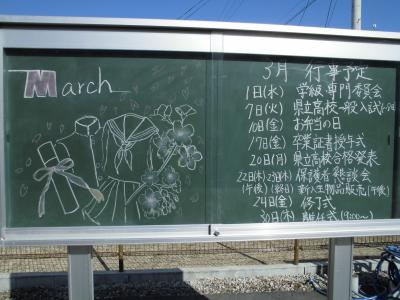 March
3月 行事予定
1日(水) 学級・専門委員会
7日(火) 県立高校一般入試(〜8日)
10日(金) お弁当の日
17日(金) 卒業証書授与式
20日(月) 県立高校合格発表
22日(水)・23日(木) 保護者懇談会
(午後) (終日) 新入生物品販売(午後)
24日(金) 修了式
30日(木) 離任式(9:00〜)